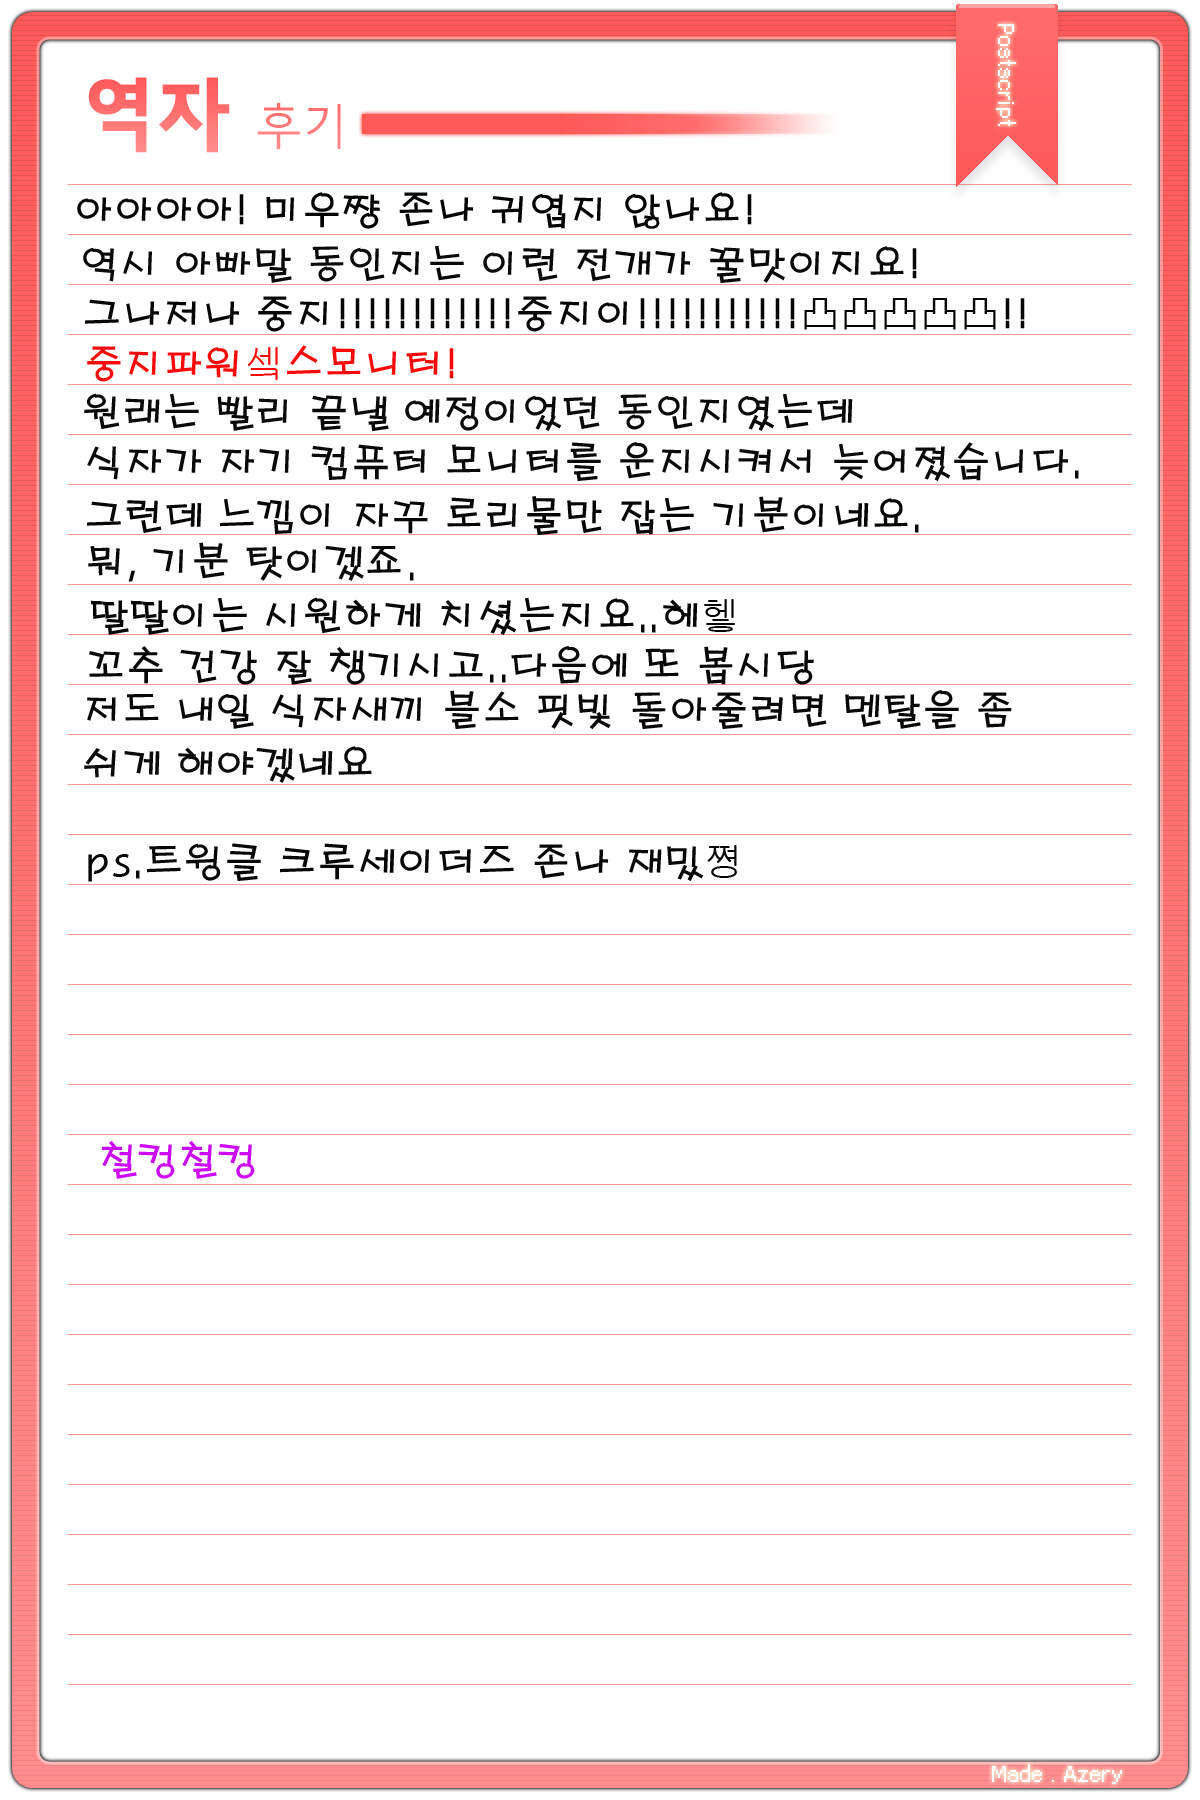 Postscript
역자 후기
아아아아! 미우쨩 존나 귀엽지 않나요!
역시 아빠말 동인지는 이런 전개가 꿀맛이지요!
그나저나 중지!!!!!!!!!!!!중지이!!!!!!!!!!!凸凸凸凸凸!!
중지파워셐스모니터!
원래는 빨리 끝낼 예정이었던 동인지였는데
식자가 자기 컴퓨터 모니터를 운지시켜서 늦어졌습니다.
그런데 느낌이 자꾸 로리물만 잡는 기분이네요.
뭐, 기분 탓이겠죠.
딸딸이는 시원하게 치셨는지요..헤헿
꼬추 건강 잘 챙기시고..다음에 또 봅시당
저도 내일 식자새끼 블소 핏빛 돌아줄려면 멘탈을 좀
쉬게 해야겠네요
ps.트윙클 크루세이더즈 존나 재밌쪙
철컹철컹
Made . Azery